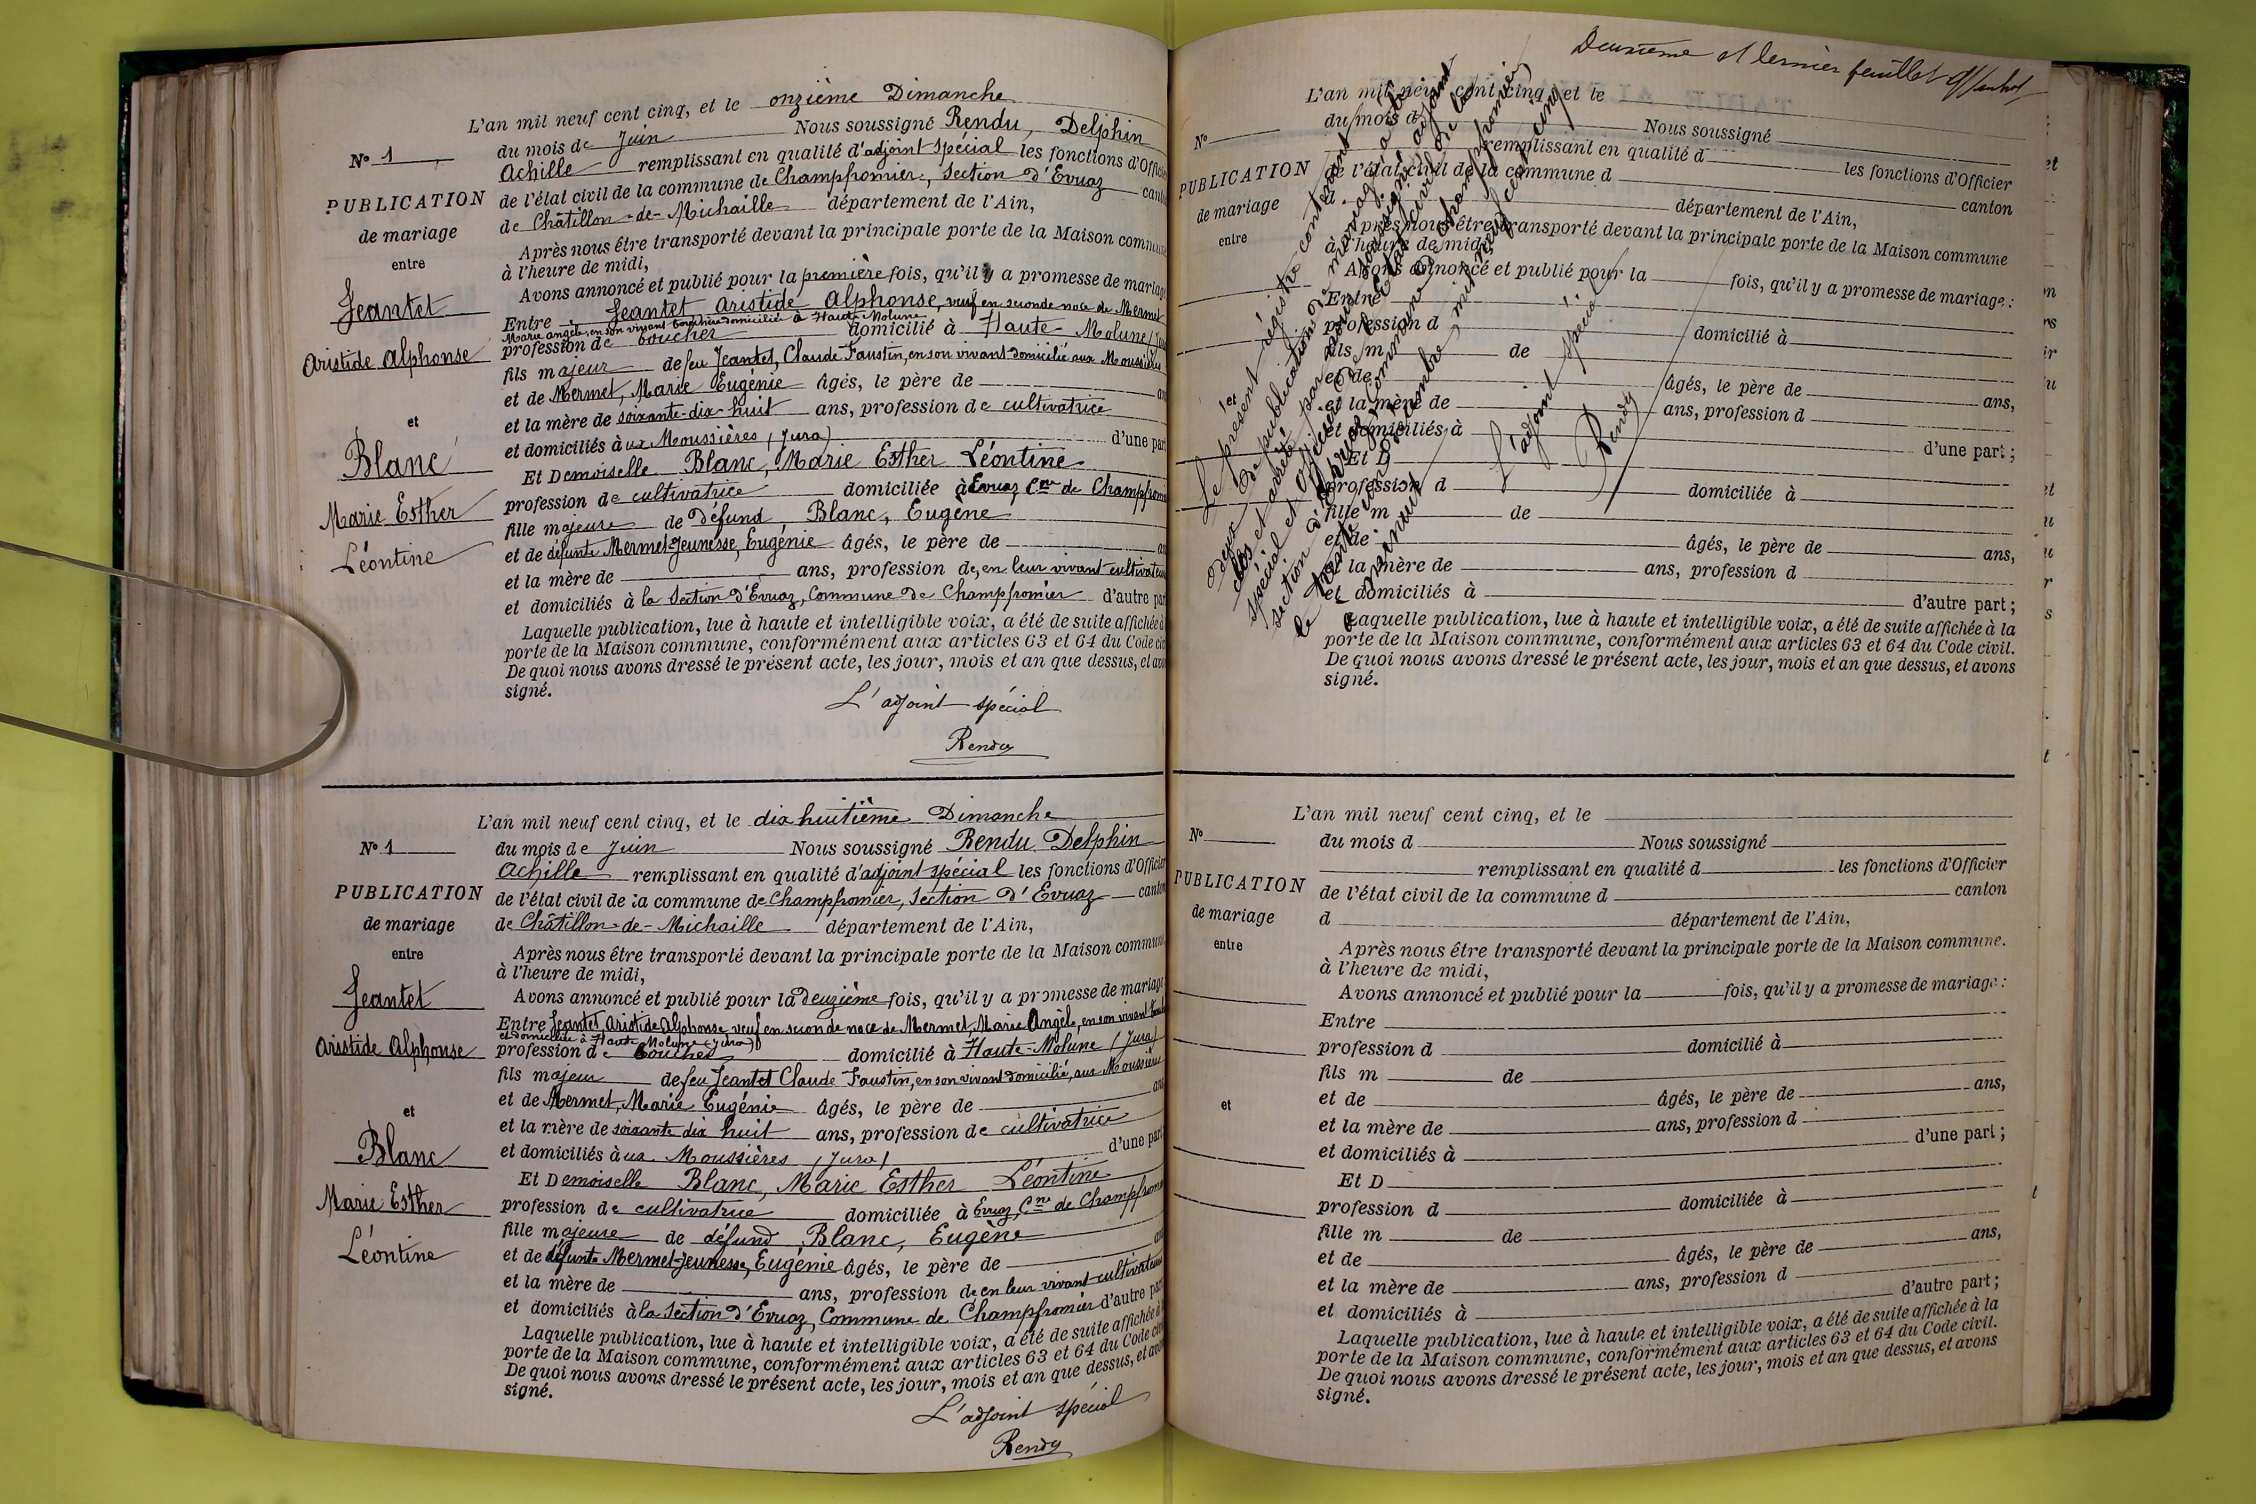 L'an mil neuf cent cinq, et le onzième Dimanche
du mois de Juin Nous soussigné Rendu, Delphin
Achille remplissant en qualité d'adjoint spécial les fonctions d'Officier
de l'état civil de la commune de Champfromier, Section d'Evuaz canton
de Châtillon-de-Michaille département de l'Ain,
Après nous être transporté devant la principale porte de la Maison commune
à l'heure de midi,
Avons annoncé et publié pour la première fois, qu'il y a promesse de mariage
Entre Jeantet Aristide Alphonse, veuf en seconde noce de Mermet
Marie angèle, en son vivant domiciliée à Haute Molune
profession de boucher domicilié à Haute Molune
fils majeur de feu Jeantet, Claude Faustin, en son vivant domicilié aux Moussières
et de Mermet, Marie Eugénie âgés, le père de
et la mère de soixante-dix-huit ans, profession de cultivatrice
et domiciliés à ux Moussières (Jura) d'une part
Et Demoiselle Blanc, Marie Esther Léontine
profession de cultivatrice domiciliée à Evuaz Cne de Champfromi
fille majeure de défund Blanc, Eugène
et de défunte Mermet-Jeunesse, Eugénie âgés, le père de
et la mère de ans, profession de, en leur vivant cultivateurs
et domiciliés à la Section d'Evuaz, Commune de Champfromier d'autre par
Laquelle publication, lue à haute et intelligible voix, a été de suite affichée à
porte de la Maison commune, conformément aux articles 63 et 64 du Code civ
De quoi nous avons dressé le présent acte, les jour, mois et an que dessus, et avo
signé.
L'adjoint spécial
Rendu
No 1
PUBLICATION
de mariage
entre
Jeantet
Aristide Alphonse
et
Blanc
Marie Esther
Léontine
L'an mil neuf cent cinq, et le dix huitième Dimanche
du mois de Juin Nous soussigné Rendu Delphin
Achille remplissant en qualité d'adjoint spécial les fonctions d'Officier
de l'état civil de la commune de Champfromier, Section d'Evuaz canton
de Châtillon-de-Michaille département de l'Ain,
Après nous être transporté devant la principale porte de la Maison commune
à l'heure de midi,
Avons annoncé et publié pour la deuzième fois, qu'il y a promesse de mariage
Entre Jeantet, Aristide Alphonse, veuf en seconde noce de Mermet, Marie Angèle, en son vivant
et domiciliée à Haute Molune (Jura)
profession de boucher domicilié à Haute-Molune (Jura)
fils majeur de feu Jeantet Claude Faustin, en son vivant domicilié, aux Moussières
et de Mermet, Marie Eugénie âgés, le père de ans
et la mère de soixante dix huit ans, profession de cultivatrice
et domiciliés à ux Moussières (Jura) d'une part
Et Demoiselle Blanc, Marie Esther Léontine
profession de cultivatrice domiciliée à Evuaz Cne de Champfromi
fille majeure de défund Blanc, Eugène
et de défunte Mermet-Jeunesse, Eugénie âgés, le père de
et la mère de ans, profession de, en leur vivant cultivateurs
et domiciliés à la Section d'Evuaz, Commune de Champfromier d'autre par
Laquelle publication, lue à haute et intelligible voix, a été de suite affichée à
porte de la Maison commune, conformément aux articles 63 et 64 du Code civ
De quoi nous avons dressé le présent acte, les jour, mois et an que dessus, et avon
signé.
L'adjoint spécial
Rendu
No 1
PUBLICATION
de mariage
entre
Jeantet
Aristide Alphonse
et
Blanc
Marie Esther
Léontine
Deuxième et dernier feuillet
L'an mil neuf cent cinq, et le
du mois d Nous soussigné
remplissant en qualité d les fonctions d'Officier
de l'état civil de la commune d canton
d département de l'Ain,
Après nous être transporté devant la principale porte de la Maison commune
à l'heure de midi,
Avons annoncé et publié pour la fois, qu'il y a promesse de mariage:
Entre
profession d domicilié à
fils m de
et de âgés, le père de ans,
et la mère de ans, profession d
et domiciliés à d'une part;
Et D
profession d domiciliée à
fille m de
et de âgés, le père de ans,
et la mère de ans, profession d
et domiciliés à d'autre part;
Laquelle publication, lue à haute et intelligible voix, a été de suite affichée à la
porte de la Maison commune, conformément aux articles 63 et 64 du Code civil.
De quoi nous avons dressé le présent acte, les jour, mois et an que dessus, et avons
signé.
No
PUBLICATION
de mariage
entre
et
Le présent régistre contenant
deux publications de mariage a été
clos et arrêté par nous soussigné adjoint
spécial et officier de l'état civil de la
section d'Evuaz, commune de Champfromier
le trente un décembre mil neuf cent cinq
à minuit
L'adjoint spécial
Rendu
L'an mil neuf cent cinq, et le
du mois d Nous soussigné
remplissant en qualité d les fonctions d'Officier
de l'état civil de la commune d canton
d département de l'Ain,
Après nous être transporté devant la principale porte de la Maison commune.
à l'heure de midi,
Avons annoncé et publié pour la fois, qu'il y a promesse de mariage:
Entre
profession d domicilié à
fils m de
et de âgés, le père de ans,
et la mère de ans, profession d
et domiciliés à d'une part;
Et D
profession d domiciliée à
fille m de
et de âgés, le père de ans,
et la mère de ans, profession d
et domiciliés à d'autre part;
Laquelle publication, lue à haute et intelligible voix, a été de suite affichée à la
porte de la Maison commune, conformément aux articles 63 et 64 du Code civil.
De quoi nous avons dressé le présent acte, les jour, mois et an que dessus, et avons
signé.
No
PUBLICATION
de mariage
entre
et